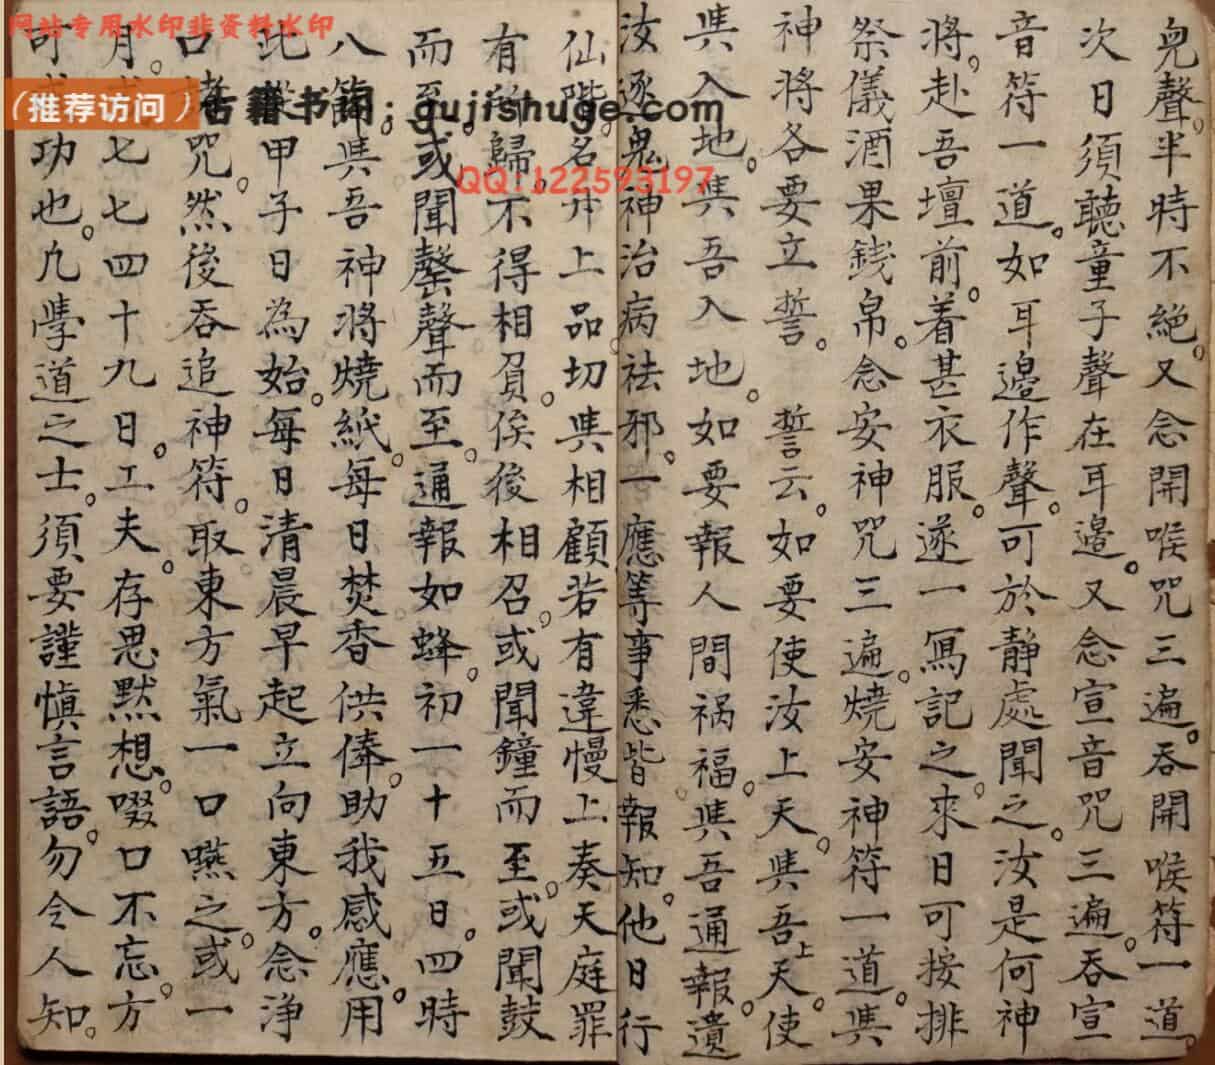 网站专用水印非资料水印
（推荐访问）古籍书阁：gujishuge.com
QQ:122593197
兒聲。半時不絶。又念開喉咒三遍。吞開喉符一道。
次日須聽童子聲在耳邉。又念宣音咒三遍。吞宣
音符一道。如耳邉作聲。可於静處聞之。汝是何神
将。赴吾壇前。着甚衣服。遂一冩記之。來日可按排
祭儀酒果錢帛。念安神咒三遍。燒安神符一道。與
神将各要立誓。誓云。如要使汝上天。與吾上天。使
與入地。與吾入地。如要報人間禍福。與吾通報。遺
汝逐鬼神治病祛邪。一應等事悉皆報知。他日行
仙階。名升上品切與相顧若有違慢上奏天庭罪
有所歸。不得相負。俟後相召。或聞鐘而至。或聞鼓
而至。或聞罄聲而至。通報如蜂。初一十五日。四時
八節。與吾神将燒紙。每日焚香供俸。助我感應。用
此從甲子日為始。每日清晨早起立向東方。念浄
口咒。然後吞追神符。取東方氣一口嚥之。或一
月或七七四十九日。工夫。存思默想。啜口不忘。方
可成功也。凢學道之士。須要謹慎言語。勿令人知。